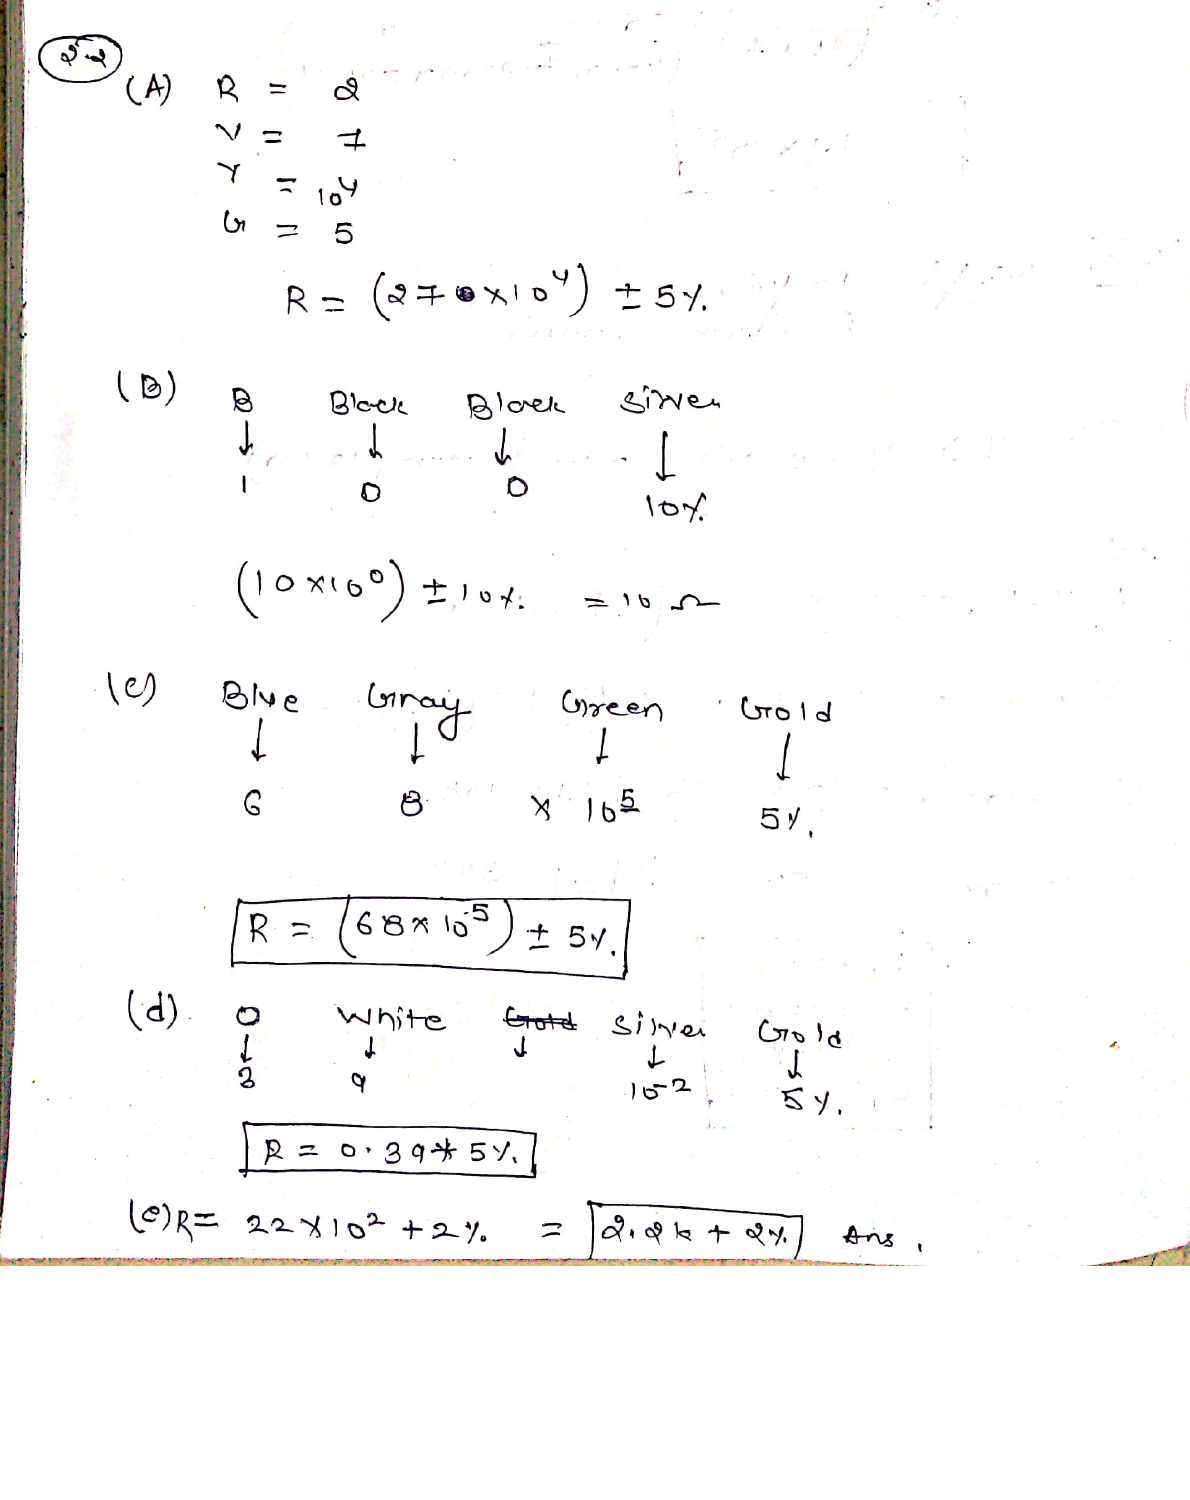 2.2
(A) R = 2
V = 7
Y = 10^4
G = 5
R = (27 × 10^4) ± 5%.
(B) B Black Black Silver
↓ ↓ ↓ ↓
1 0 0 10%.
(10 × 10^0) ± 10%. = 10 Ω
(c) Blue Gray Green Gold
↓ ↓ ↓ ↓
6 8 × 10^5 5%.
R = (68 × 10^5) ± 5%.
(d) O White Gold Silver Gold
↓ ↓ ↓ ↓ ↓
3 9 10^-2 5%.
R = 0.39 ± 5%.
(e) R = 22 × 10^2 + 2%. = 2.2k + 2%. Ans.